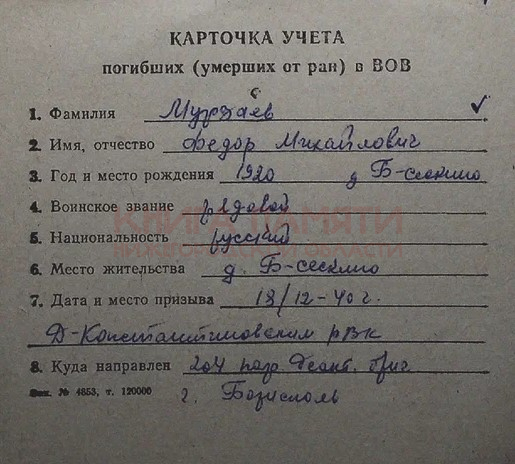 КАРТОЧКА УЧЕТА
погибших (умерших от ран) в ВОВ
1. Фамилия Мурзаев ✓
2. Имя, отчество Федор Михайлович
3. Год и место рождения 1920 д Б-сескино
4. Воинское звание рядовой
5. Национальность русский
6. Место жительства д. Б-сескино
7. Дата и место призыва 18/12-40 г.
Д-Константиновским РВК
8. Куда направлен 204 возд десант. бриг
Зак. № 4853, т. 120000 г. Борисполь
КНИГА ПАМЯТИ
НИЖЕГОРОДСКОЙ ОБЛАСТИ